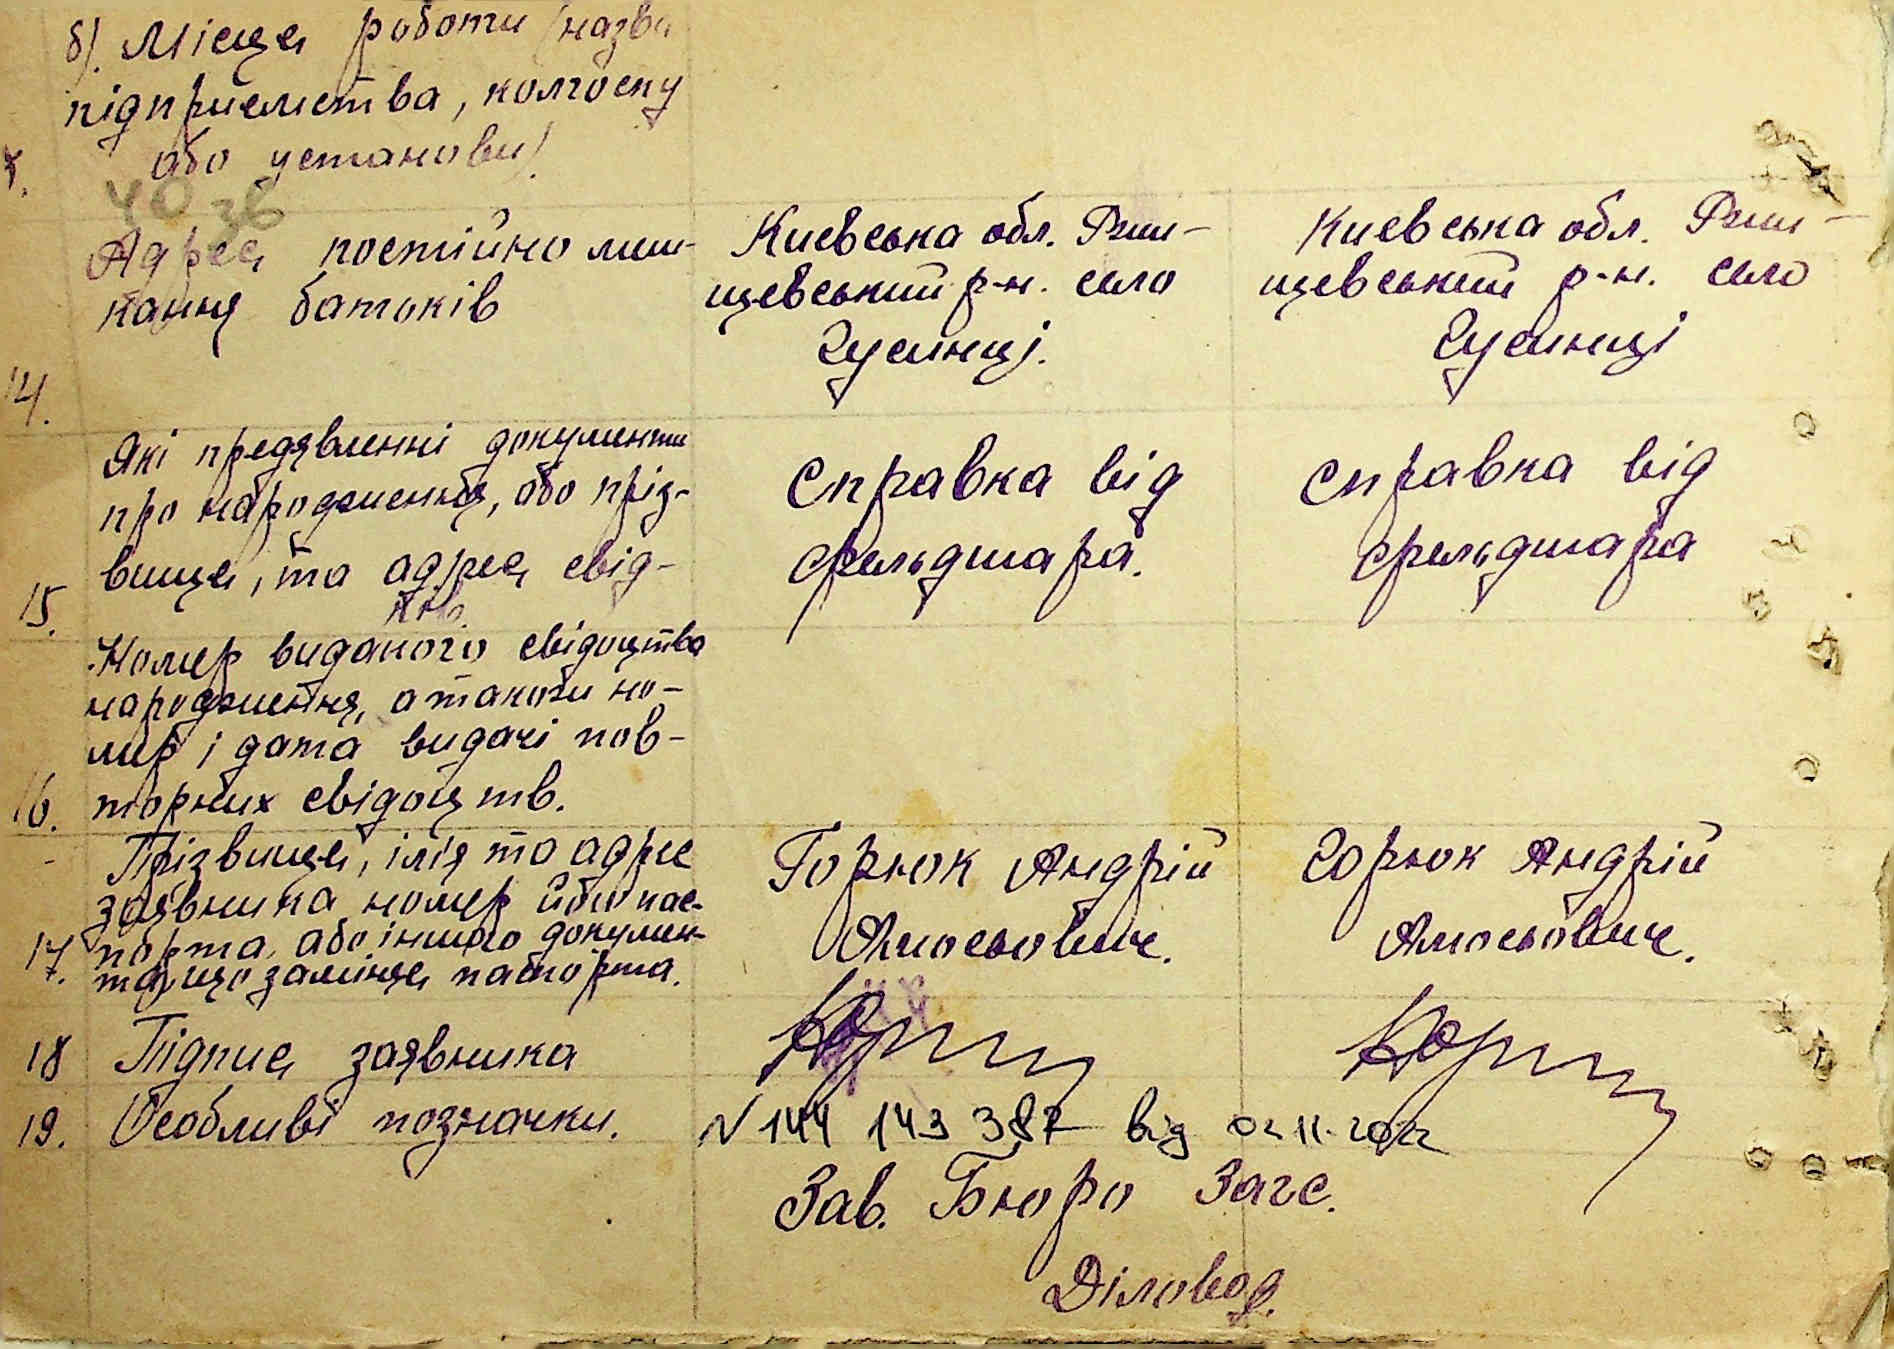 б). Місце роботи (назва
підприємства, колгоспу
або установи)
40 зв
Адрес постійно меш-
кання батьків
Киевська обл. Ржи-
щевський р-н. село
Гусинці.
Киевська обл. Ржи-
щевський р-н. село
Гусинці
14.
Які предявленні документи
про народження, або пріз-
вище, та адрес свід-
ків.
Справка від
фельдшара.
Справка від
фельдшара
15.
Номер виданого свідоцтва
народження, а також но-
мер і дата видачі пов-
торних свідоцтв.
16.
Прізвище, імія та адрес
заявника номер його пас-
порта, або іншого докумен-
та, що заміняє паспорта.
17.
Горнюк Андрій
Амосьович.
Горнюк Андрій
Амосьович.
18 Підпис заявника
19. Особливі позначки.
N 144 143 387 від 02.11.2012
Зав. Бюро Загс.
Діловод.